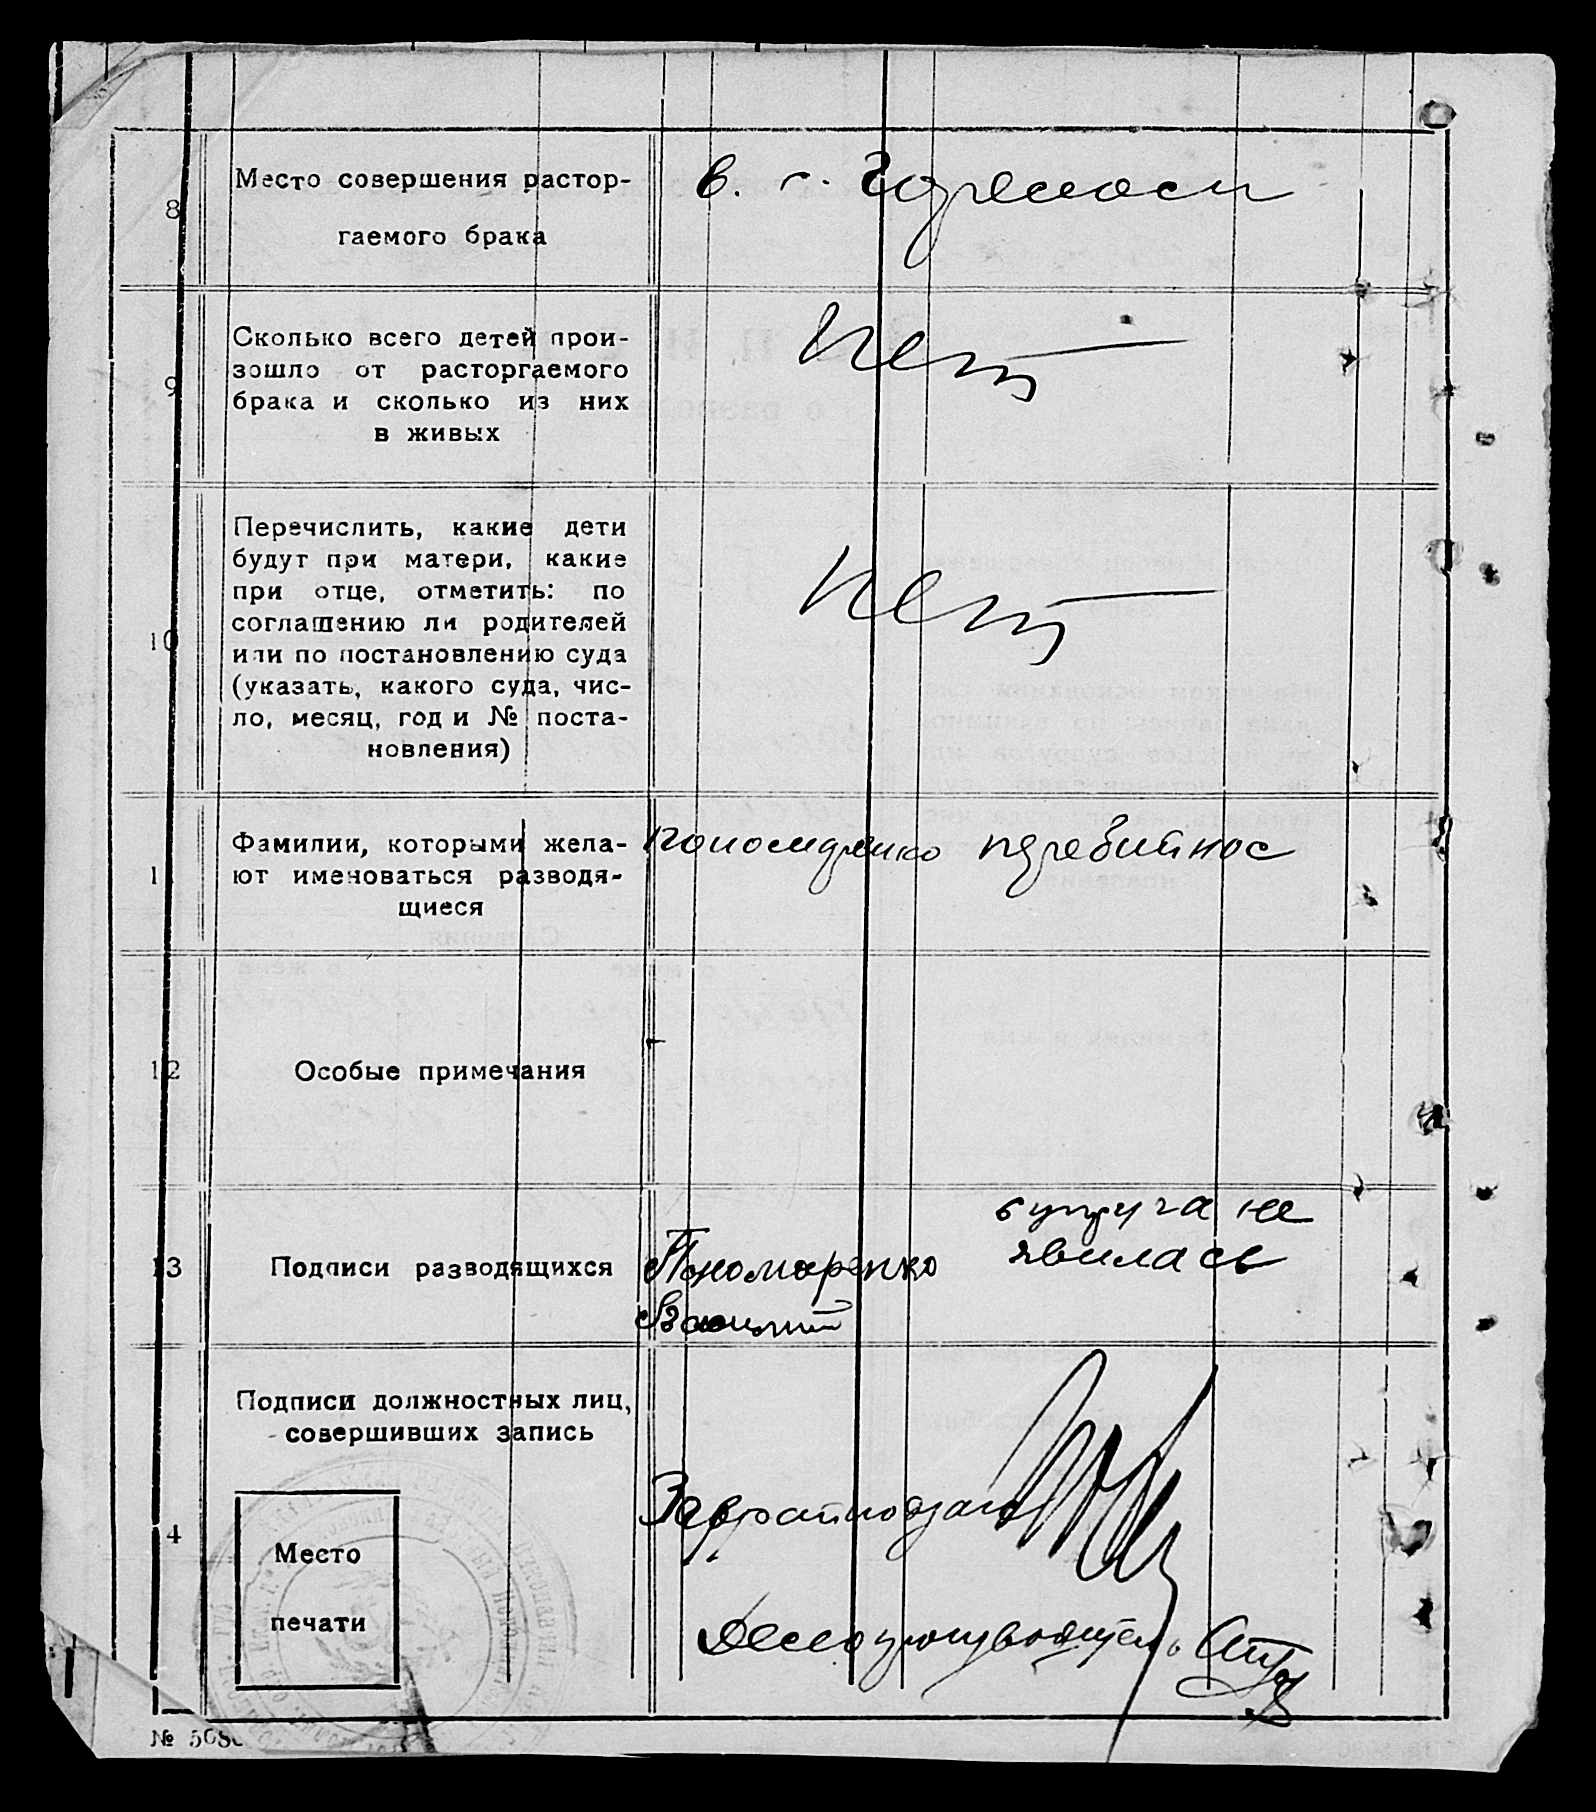 8
Место совершения растор-
гаемого брака
в. г.
9
Сколько всего детей прои-
зошло от расторгаемого
брака и сколько из них
в живых
Нет
10
Перечислить, какие дети
будут при матери, какие
при отце, отметить: по
соглашению ли родителей
или по постановлению суда
(указать, какого суда, чис-
ло, месяц, год и № поста-
новления)
Нет
1
Фамилии, которыми жела-
ют именоваться разводя-
щиеся
Пономаренко Перебийнос
12
Особые примечания
13
Подписи разводящихся
Пономаренко
Василий
супруга не
явилась
4
Подписи должностных лиц,
совершивших запись
Место
печати
Делопроизводитель
№ 508